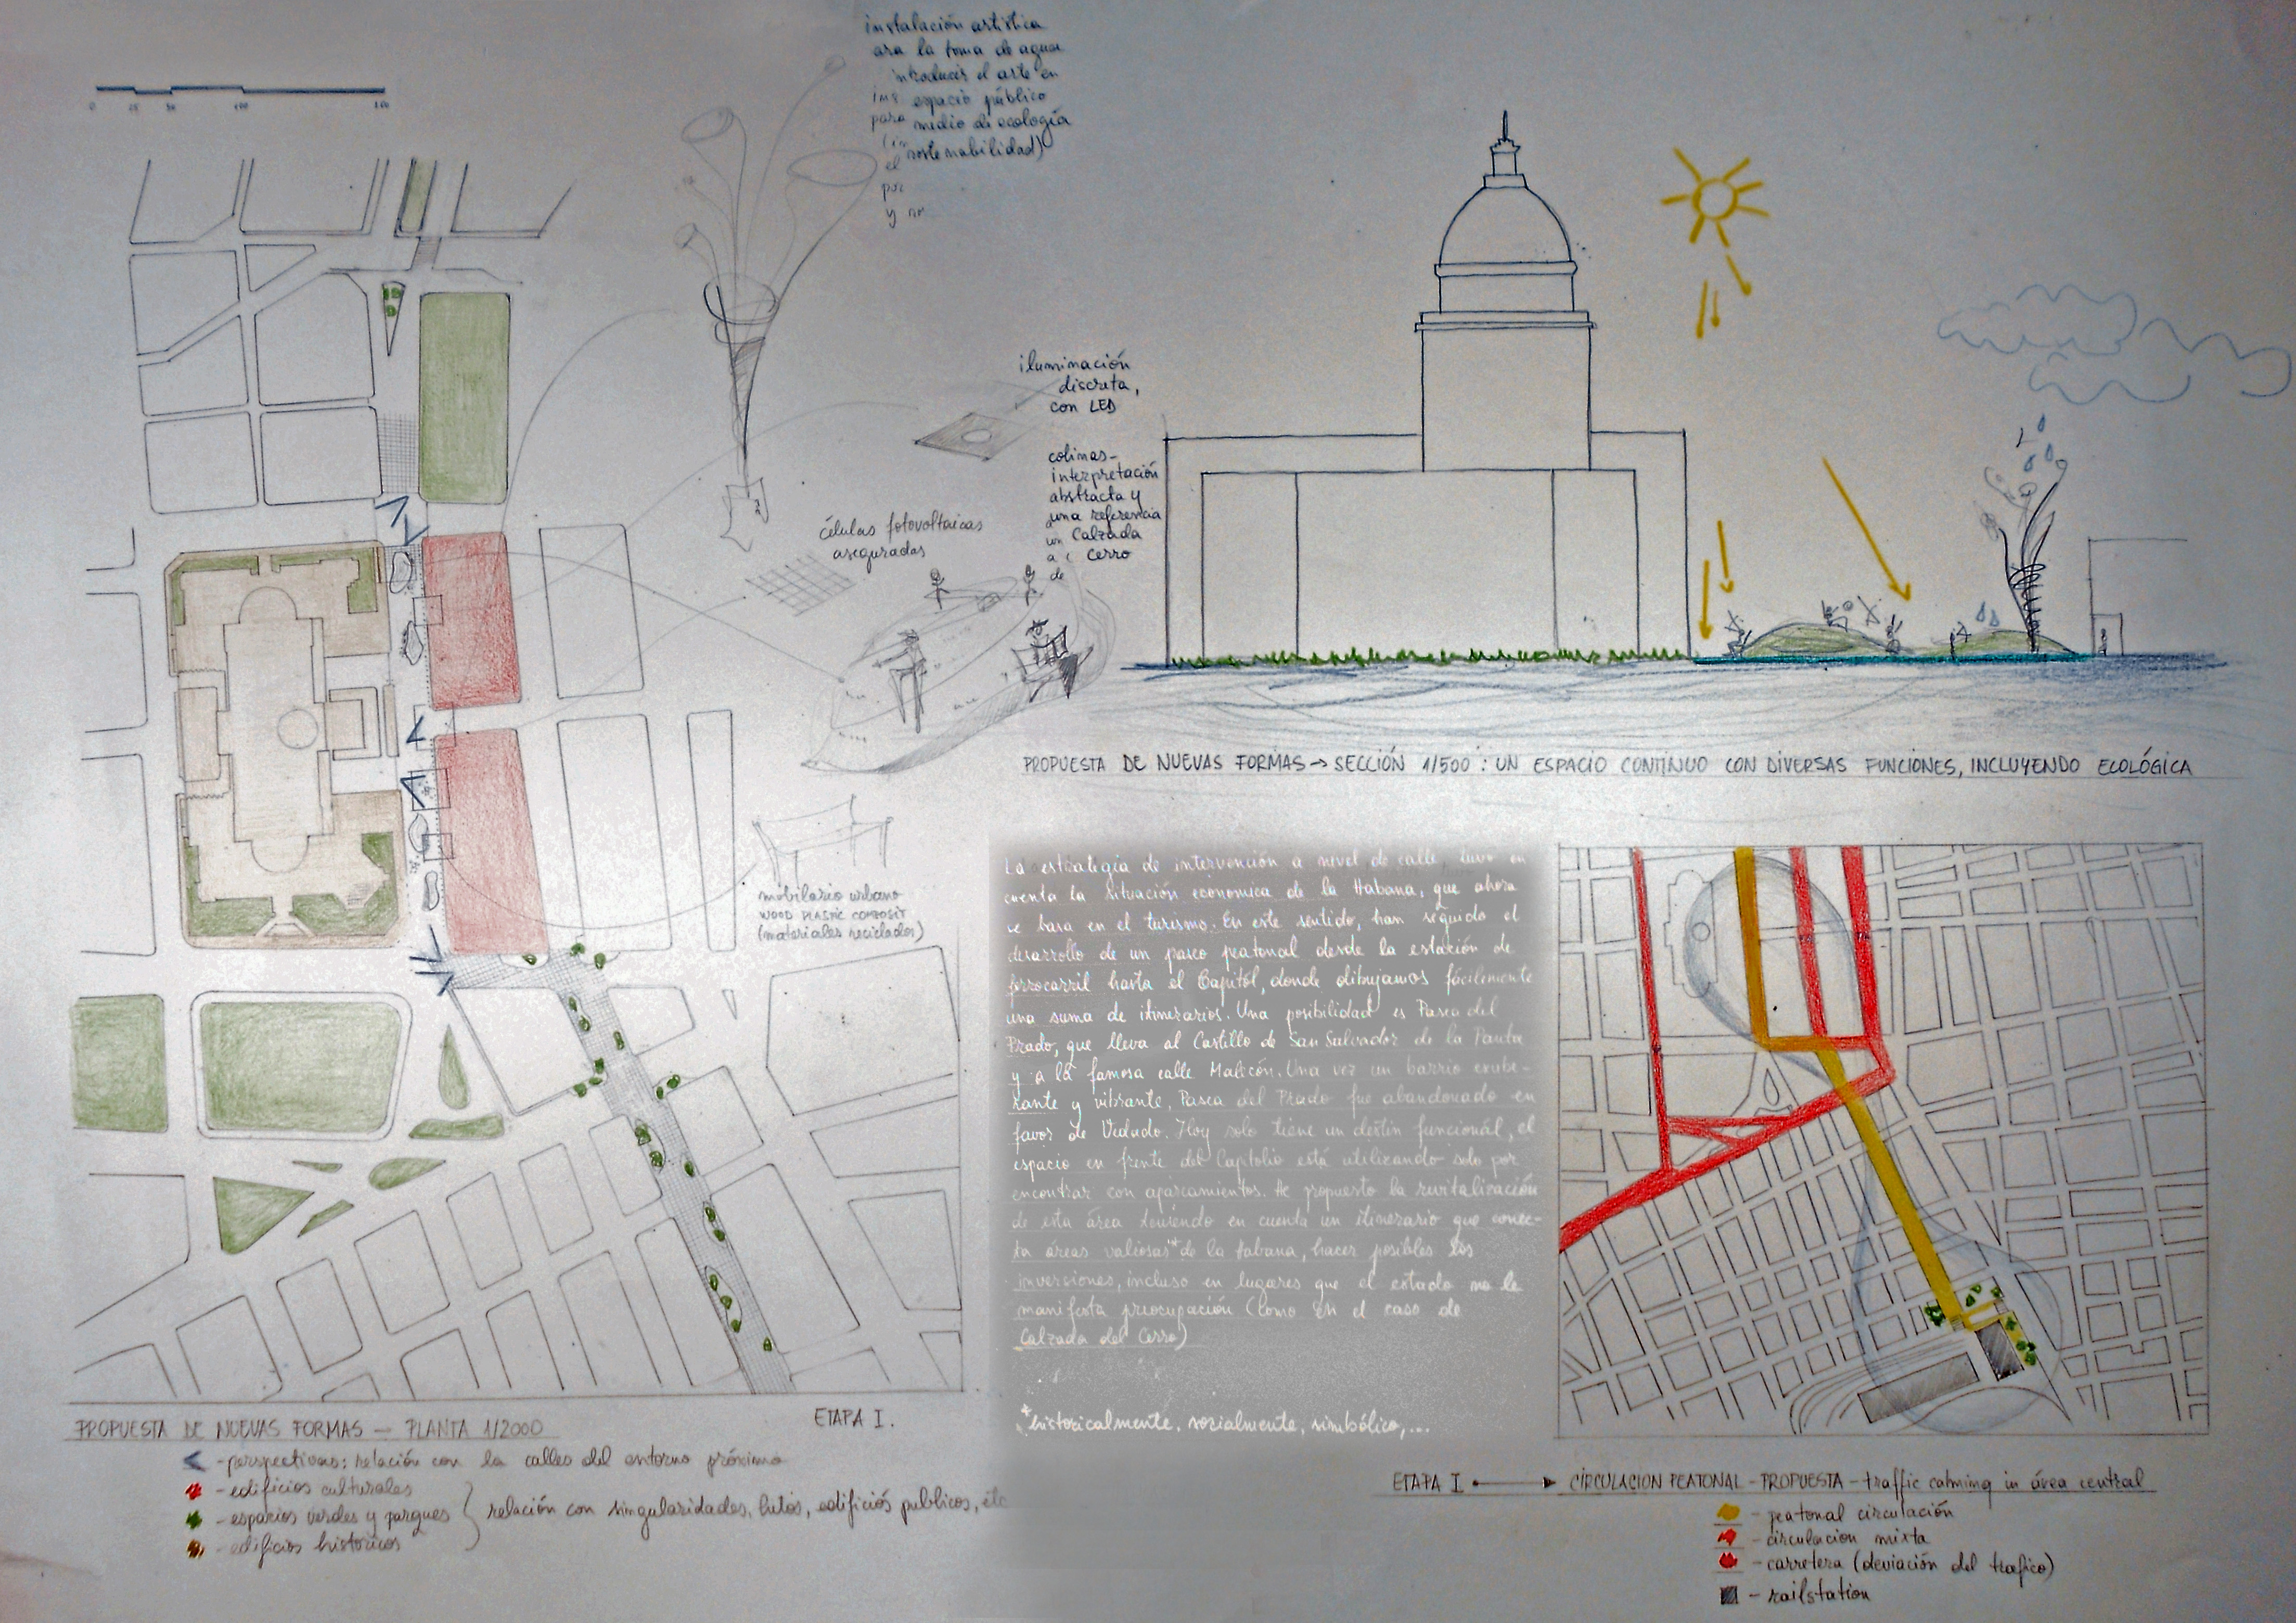 instalación artística
ara la toma de agua
introducir el arte en
ins espacio público
para medio de ecología
(in sostenabilidad)
el
por
y
0 25 50 100 200
iluminación
discreta,
con LED
colinas-
interpretación
abstracta y
una referencia
un Calzada
a Cerro
de
células fotovoltaicas
aseguradas
mobilario urbano
WOOD PLASTIC COMPOSIT
(materiales reciclados)
PROPUESTA DE NUEVAS FORMAS → SECCIÓN 1/500 : UN ESPACIO CONTINUO CON DIVERSAS FUNCIONES, INCLUYENDO ECOLÓGICA
La estrategia de intervención a nivel de calle, tuvo en
cuenta la situación economica de la Habana, que ahora
se basa en el turismo. En este sentido, han seguido el
desarrollo de un paseo peatonal desde la estación de
ferrocarril hasta el Capitól, donde dibujamos fácilemente
una suma de itinerarios. Una posibilidad es Pasea del
Prado, que lleva al Castillo de San Salvador de la Punta
y a la famosa calle Malicón. Una vez un barrio exube-
rante y vibrante, Pasea del Prado fue abandonado en
favor de Vedado. Hoy solo tiene un destin funcionál, el
espacio en frente del Capitolio está utilizando solo por
encontrar con aparcamientos. He propuesto la revitalización
de esta área teniendo en cuenta un itinerario que conec-
ta áreas valiosas* de la Habana, hacer posibles las
inversiones, incluso en lugares que el estado no le
manifesta preocupación (como en el caso de
Calzada del Cerro)
*historicalmente, socialmente, simbólico,...
PROPUESTA DE NUEVAS FORMAS — PLANTA 1/2000
ETAPA I.
- perspectivas: relación con la calles del entorno próximo
- edificios culturales
- espacios verdes y parques
- edificios historicos
relación con singularidades, hitos, edificiós publicos, etc
ETAPA I → CIRCULACION PEATONAL - PROPUESTA - traffic calming in área central
- peatonal circulación
- circulacion mixta
- carretera (deviación del trafico)
- railstation